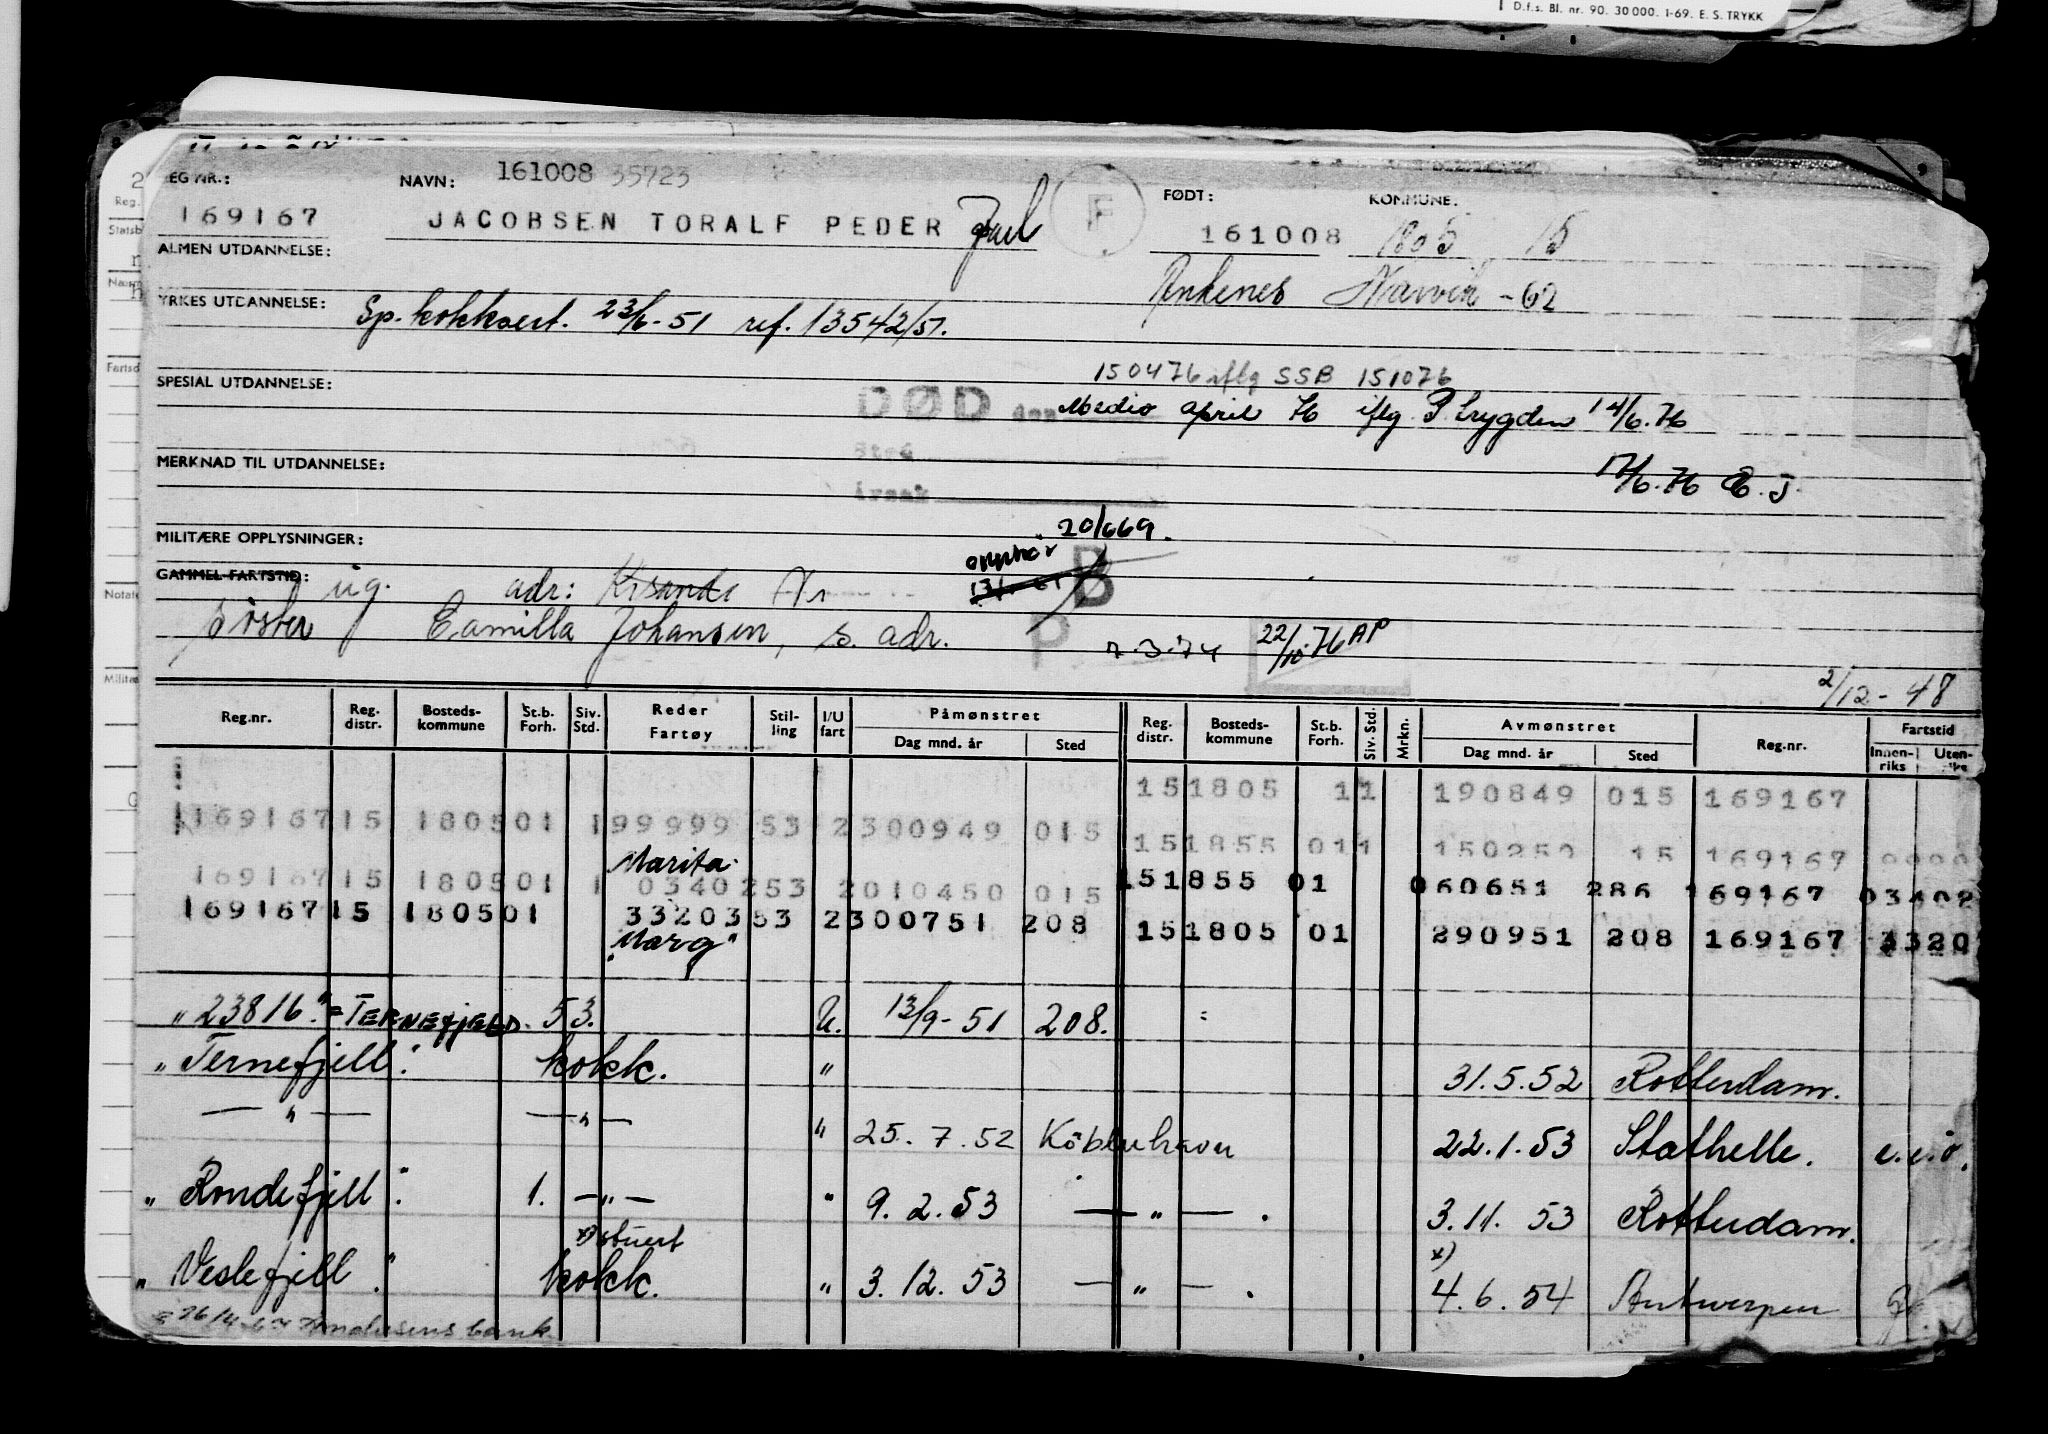 D.f.s. Bl. nr. 90. 30 000. 1-69. E. S. TRYKK
REG NR.: NAVN: 161008 35723 F FØDT: KOMMUNE.
169167 JACOBSEN TORALF PEDER 161008 1805 15
ALMEN UTDANNELSE:
Ankenes Narvik -62
YRKES UTDANNELSE: Sp. kokksert. 23/6-51 ref. 13542/51.
150476 iflg SSB 151076
SPESIAL UTDANNELSE: DØD den Medio april 76 iflg P.trygden 14/6.76
Sted
MERKNAD TIL UTDANNELSE: 17/6.76 E.J.
Årsak
20/669.
MILITÆRE OPPLYSNINGER: opphør B
GAMMEL FARTSTID: ug. adr: Krsands
søster Camilla Johansen, s. adr. P 7.3.74 22/10.76 AP
2/12-48
Reg.nr. Reg. distr. Bosteds-kommune St.b. Forh. Siv. Std. Reder Fartøy Stil-ling I/U fart Påmønstret Dag mnd. år Sted Reg. distr. Bosteds-kommune St.b. Forh. Siv. Std. Mrkn. Avmønstret Dag mnd. år Sted Reg.nr. Fartstid Innen-riks Uten-riks
151805 11 190849 015 169167
169167 15 180501 199999 53 2 300949 015
151855 011 150250 15 169167
Marita
169167 15 180501 1 0340253 2010450 015 151855 01 060651 286 169167 03402
169167 15 180501 3320353 2300751 208 151805 01 290951 208 169167 3320
"Marg"
"23816" = TERNEFJELD. 53. U. 13/9-51 208.
"Ternefjell". kokk. " 31.5.52 Rotterdam.
— " — — " — " 25. 7. 52 Köbenhavn 22.1.53 Stathelle.
"Rondefjell". 1. — " — " 9. 2. 53 — " — . 3.11. 53 Rotterdam.
x) stuert x)
"Veslefjell". kokk. " 3. 12. 53 — " — . 4. 6. 54 Antwerpen